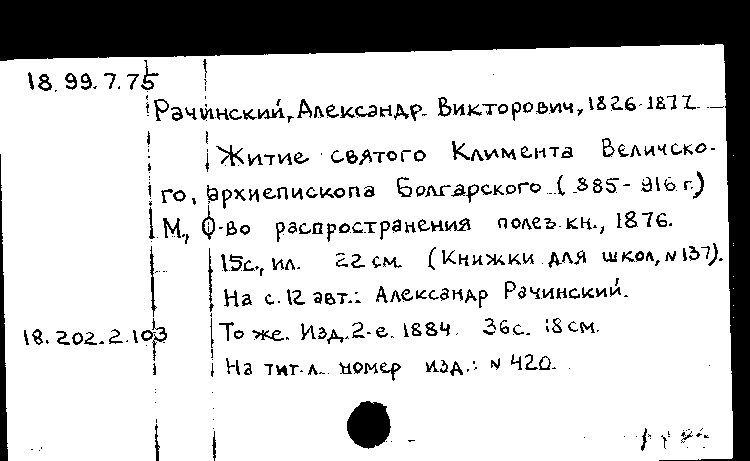 18.99.7.75
Рачинский, Александр Викторович, 1826-1877
Житие святого Климента Величско-
го, архиепископа Болгарского (885-916 г.)
М., О-во распространения полез. кн., 1876.
15с., ил. 22 см. (Книжки для школ, N 137).
На с. 12 авт.: Александр Рачинский.
18.202.2.103 То же. Изд. 2-е. 1884. 36с. 18см.
На тит. л. номер изд.: N 420.